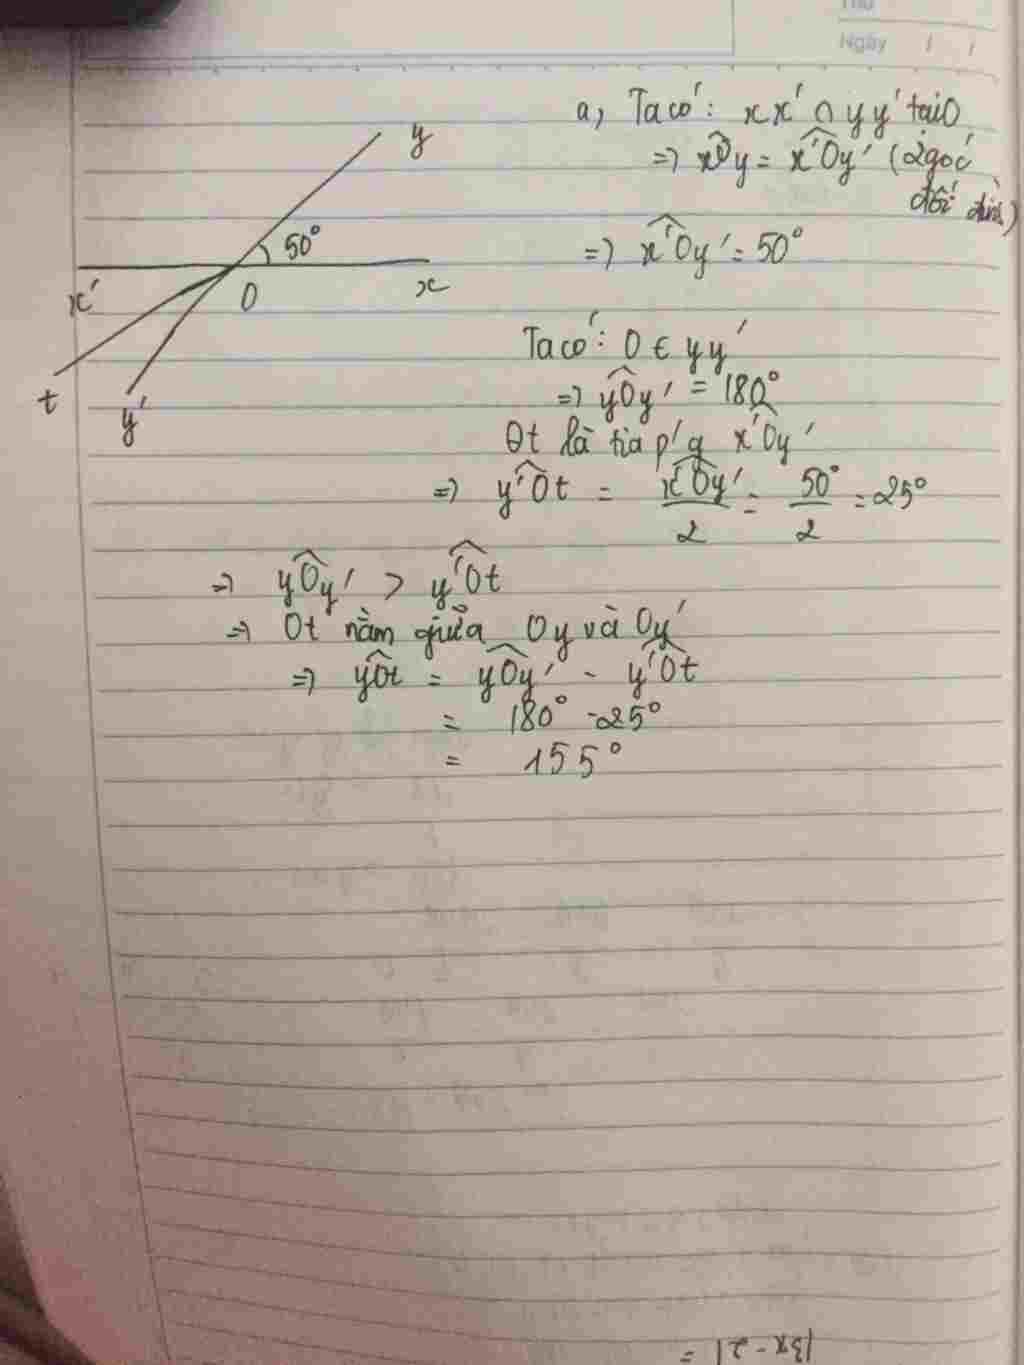 Thứ
Ngày / /
y
50°
x'
O
x
t
y'
a, Ta có: xx' ∩ yy' tại O
=> xÔy = x'Ôy' (2 góc
đối đỉnh)
=> x'Ôy' = 50°
Ta có: O ∈ yy'
=> yÔy' = 180°
Ot là tia p/g x'Ôy'
=> y'Ôt = x'Ôy'/2 = 50°/2 = 25°
=> yÔy' > y'Ôt
=> Ot nằm giữa Oy và Oy'
=> yÔt = yÔy' - y'Ôt
= 180° - 25°
= 155°
|3x - 2| =